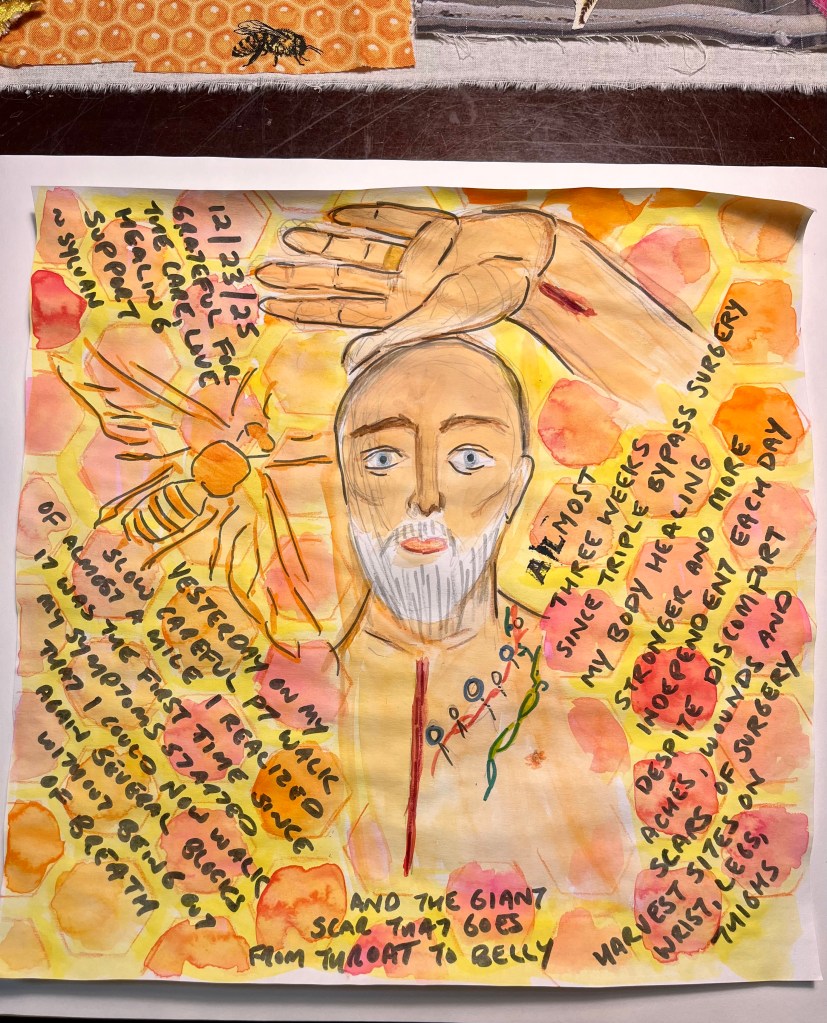 12/23/25
GRATEFUL FOR
THE CARE, LOVE
HEALING &
SUPPORT
~ SYLVAN
YESTERDAY ON MY
SLOW CAREFUL PT WALK
OF ALMOST A MILE I REALIZED
IT WAS THE FIRST TIME SINCE
MY SYMPTOMS STARTED
THAT I COULD NOW WALK
AGAIN SEVERAL BLOCKS
WITHOUT BEING OUT
OF BREATH
ALMOST
THREE WEEKS
SINCE TRIPLE BYPASS SURGERY
MY BODY HEALING
STRONGER AND MORE
INDEPENDENT EACH DAY
DESPITE DISCOMFORT
ACHES, WOUNDS AND
SCARS OF SURGERY
HARVEST SITES ON
WRIST, LEGS,
THIGHS
AND THE GIANT
SCAR THAT GOES
FROM THROAT TO BELLY